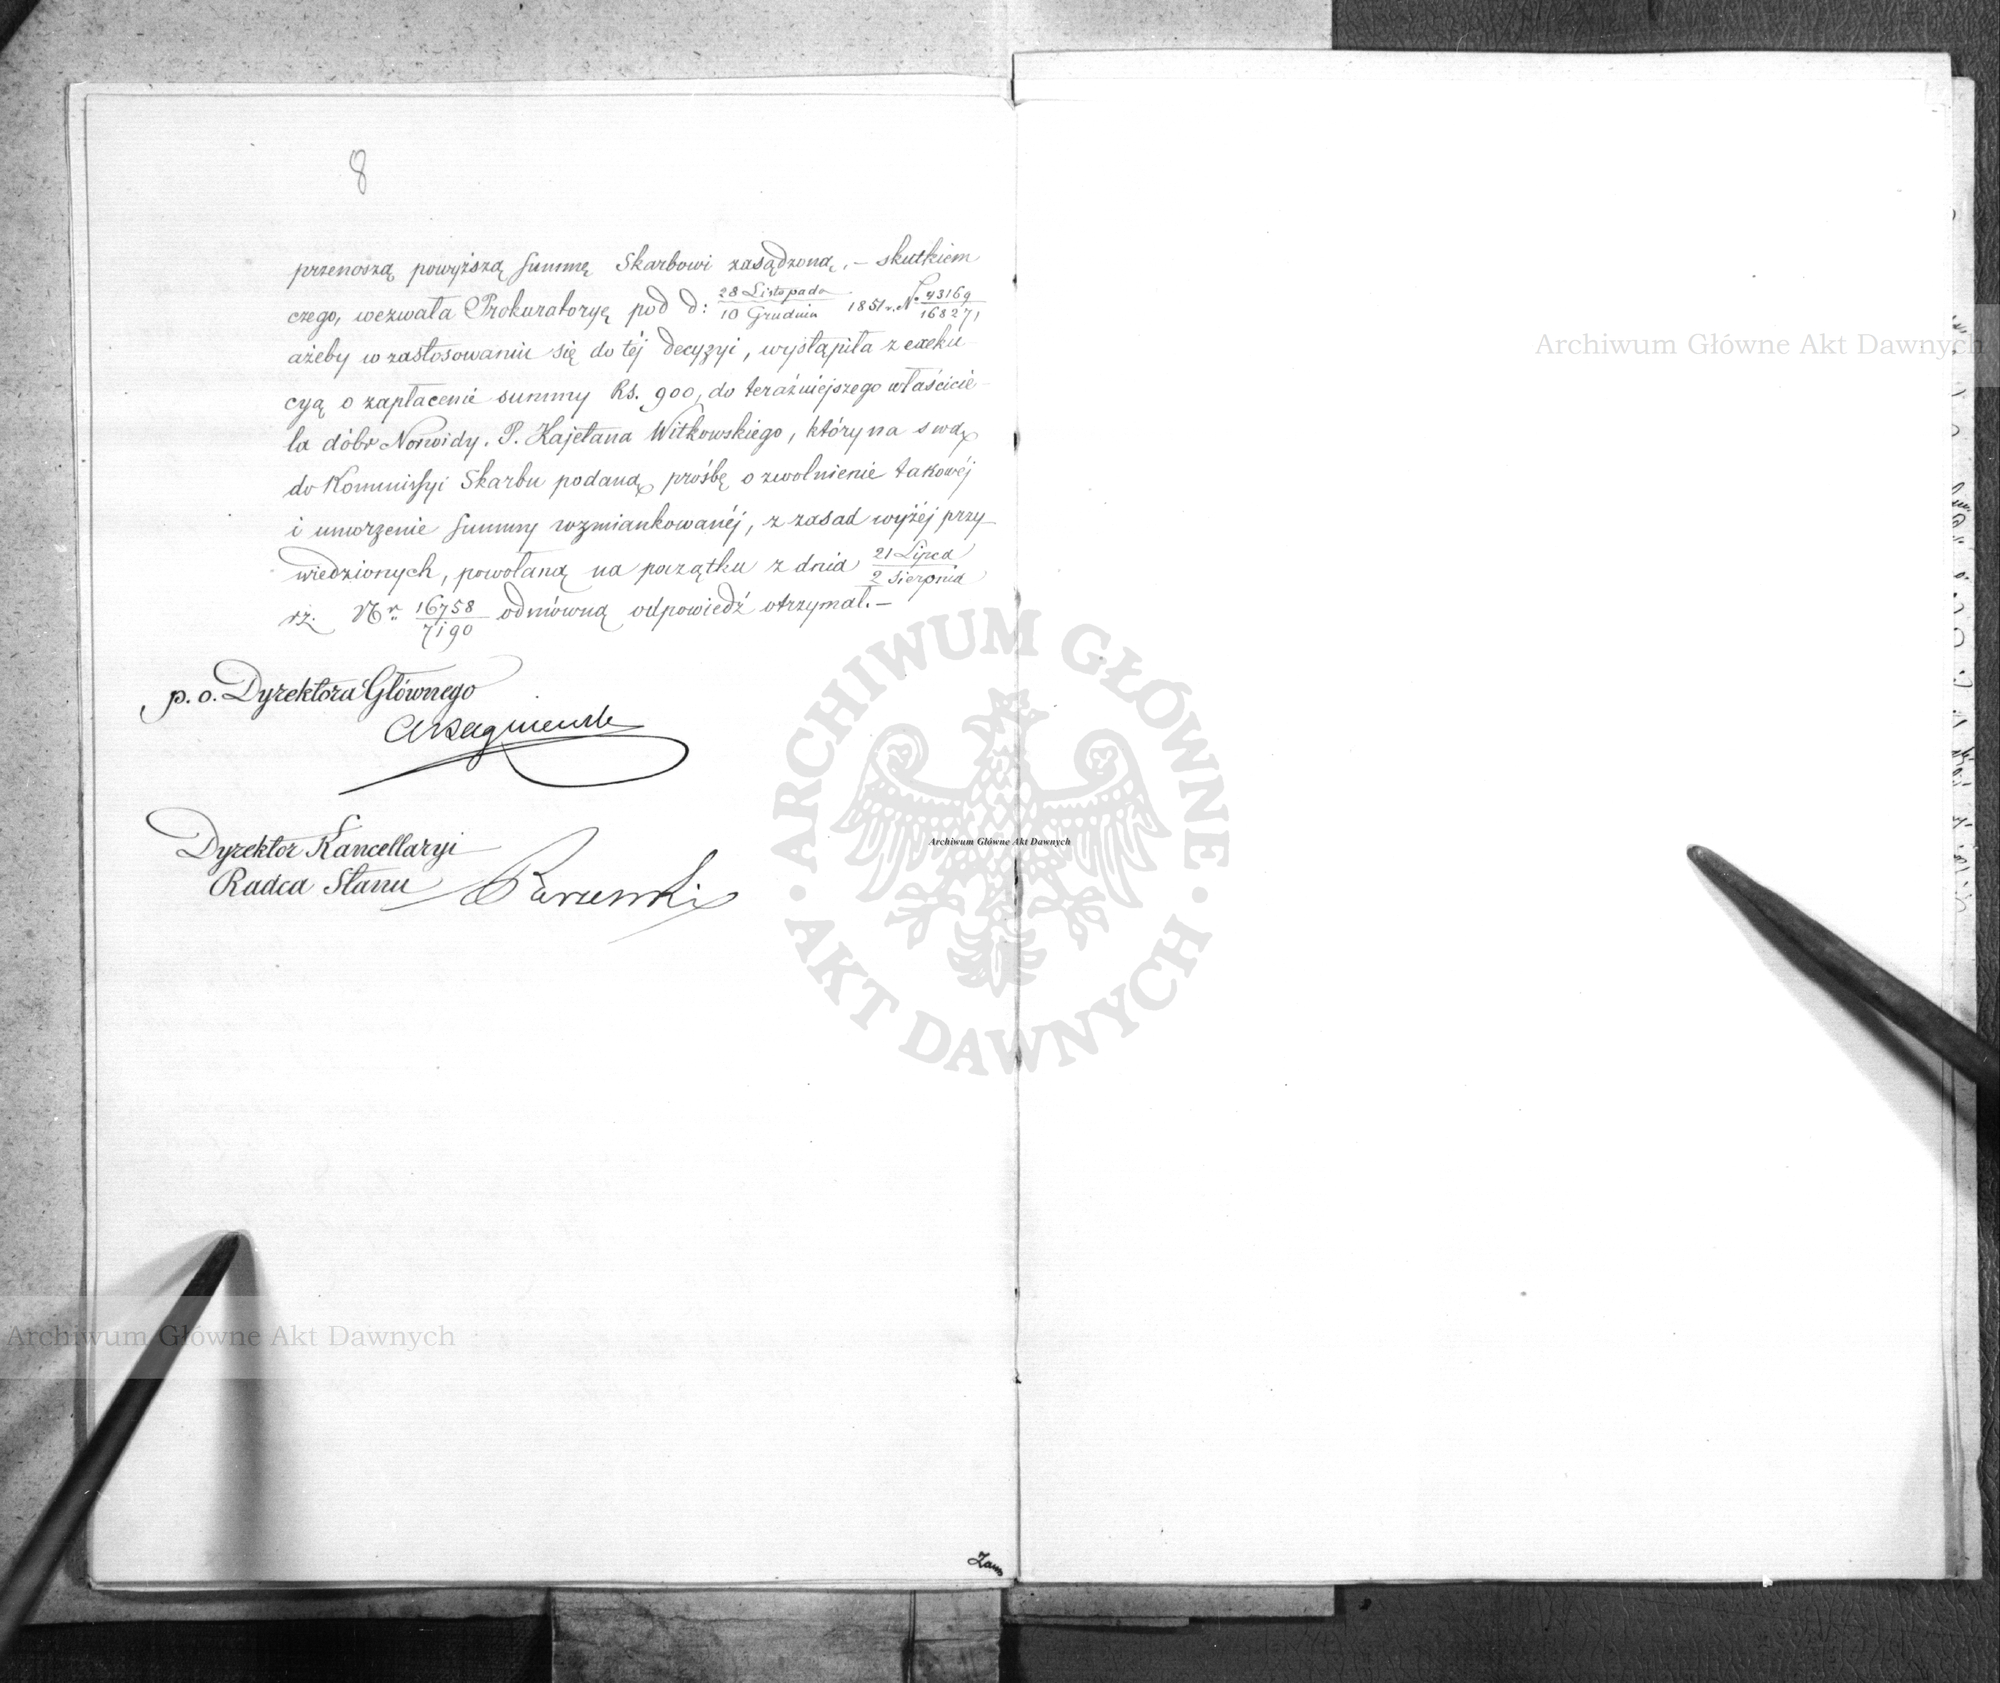 8
przenoszą powyższą summę Skarbowi zasądzoną, – skutkiem
czego, wezwała Prokuratoryę pod d: 28 Listopada / 10 Grudnia 1851 r. N° 43169 / 16827,
ażeby w zastosowaniu się do téj decyzyi, wystąpiła z exeku-
cyą o zapłacenie summy Rs. 900, do teraźniejszego właścicie-
la dóbr Norwidy. P. Kajetana Witkowskiego, który na swą
do Kommissyi Skarbu podaną prośbę o zwolnienie takowéj
i umorzenie summy wzmiankowanéj, z zasad wyżéj przy-
wiedzionych, powołaną na początku z dnia 21 Lipca / 2 Sierpnia
rz. Nr 16758 / 7190 odmówną odpowiedź otrzymał. –
p. o. Dyrektora Głównego
Dyrektor Kancellaryi
Radca Stanu
Archiwum Główne Akt Dawnych
ARCHIWUM GŁÓWNE AKT DAWNYCH
Archiwum Główne Akt Dawnych
Archiwum Główne Akt Dawnych